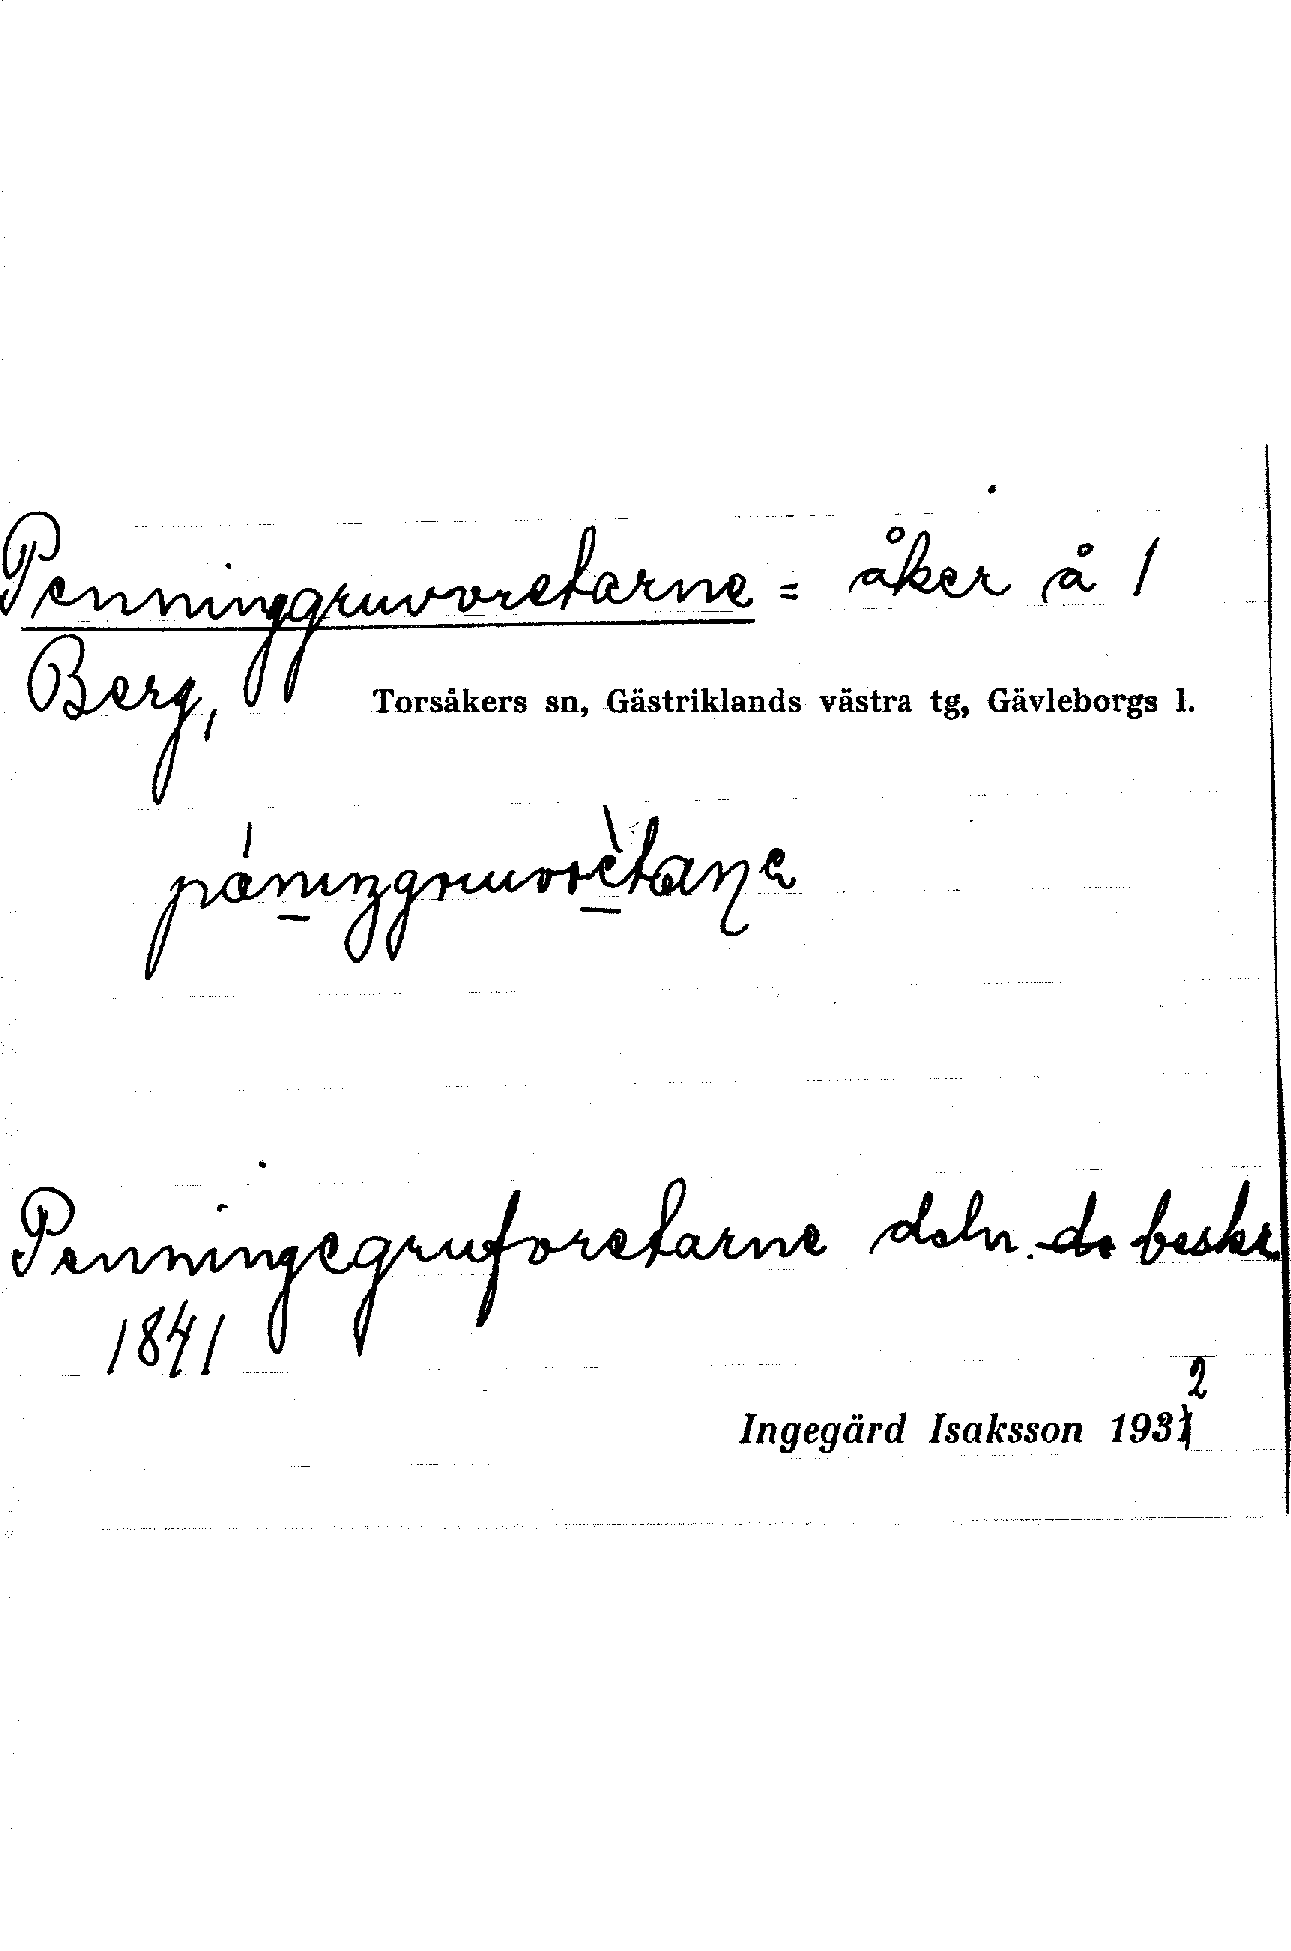 Penninggruvoretarne = åker å 1
Berg,
Torsåkers sn, Gästriklands västra tg, Gävleborgs l.
Penningegruforetarne deln. de beskr
1841
2
Ingegärd Isaksson 1931